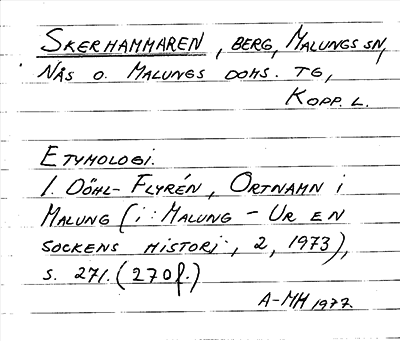 SKERHAMMAREN, BERG, MALUNGS SN,
NÅS O. MALUNGS DOMS. TG,
KOPP. L.
ETYMOLOGI.
1. DÖHL-FLYRÉN, ORTNAMN I
MALUNG (I: MALUNG - UR EN
SOCKENS HISTORI, 2, 1973),
S. 271. (270 f.)
A-MM 1977.